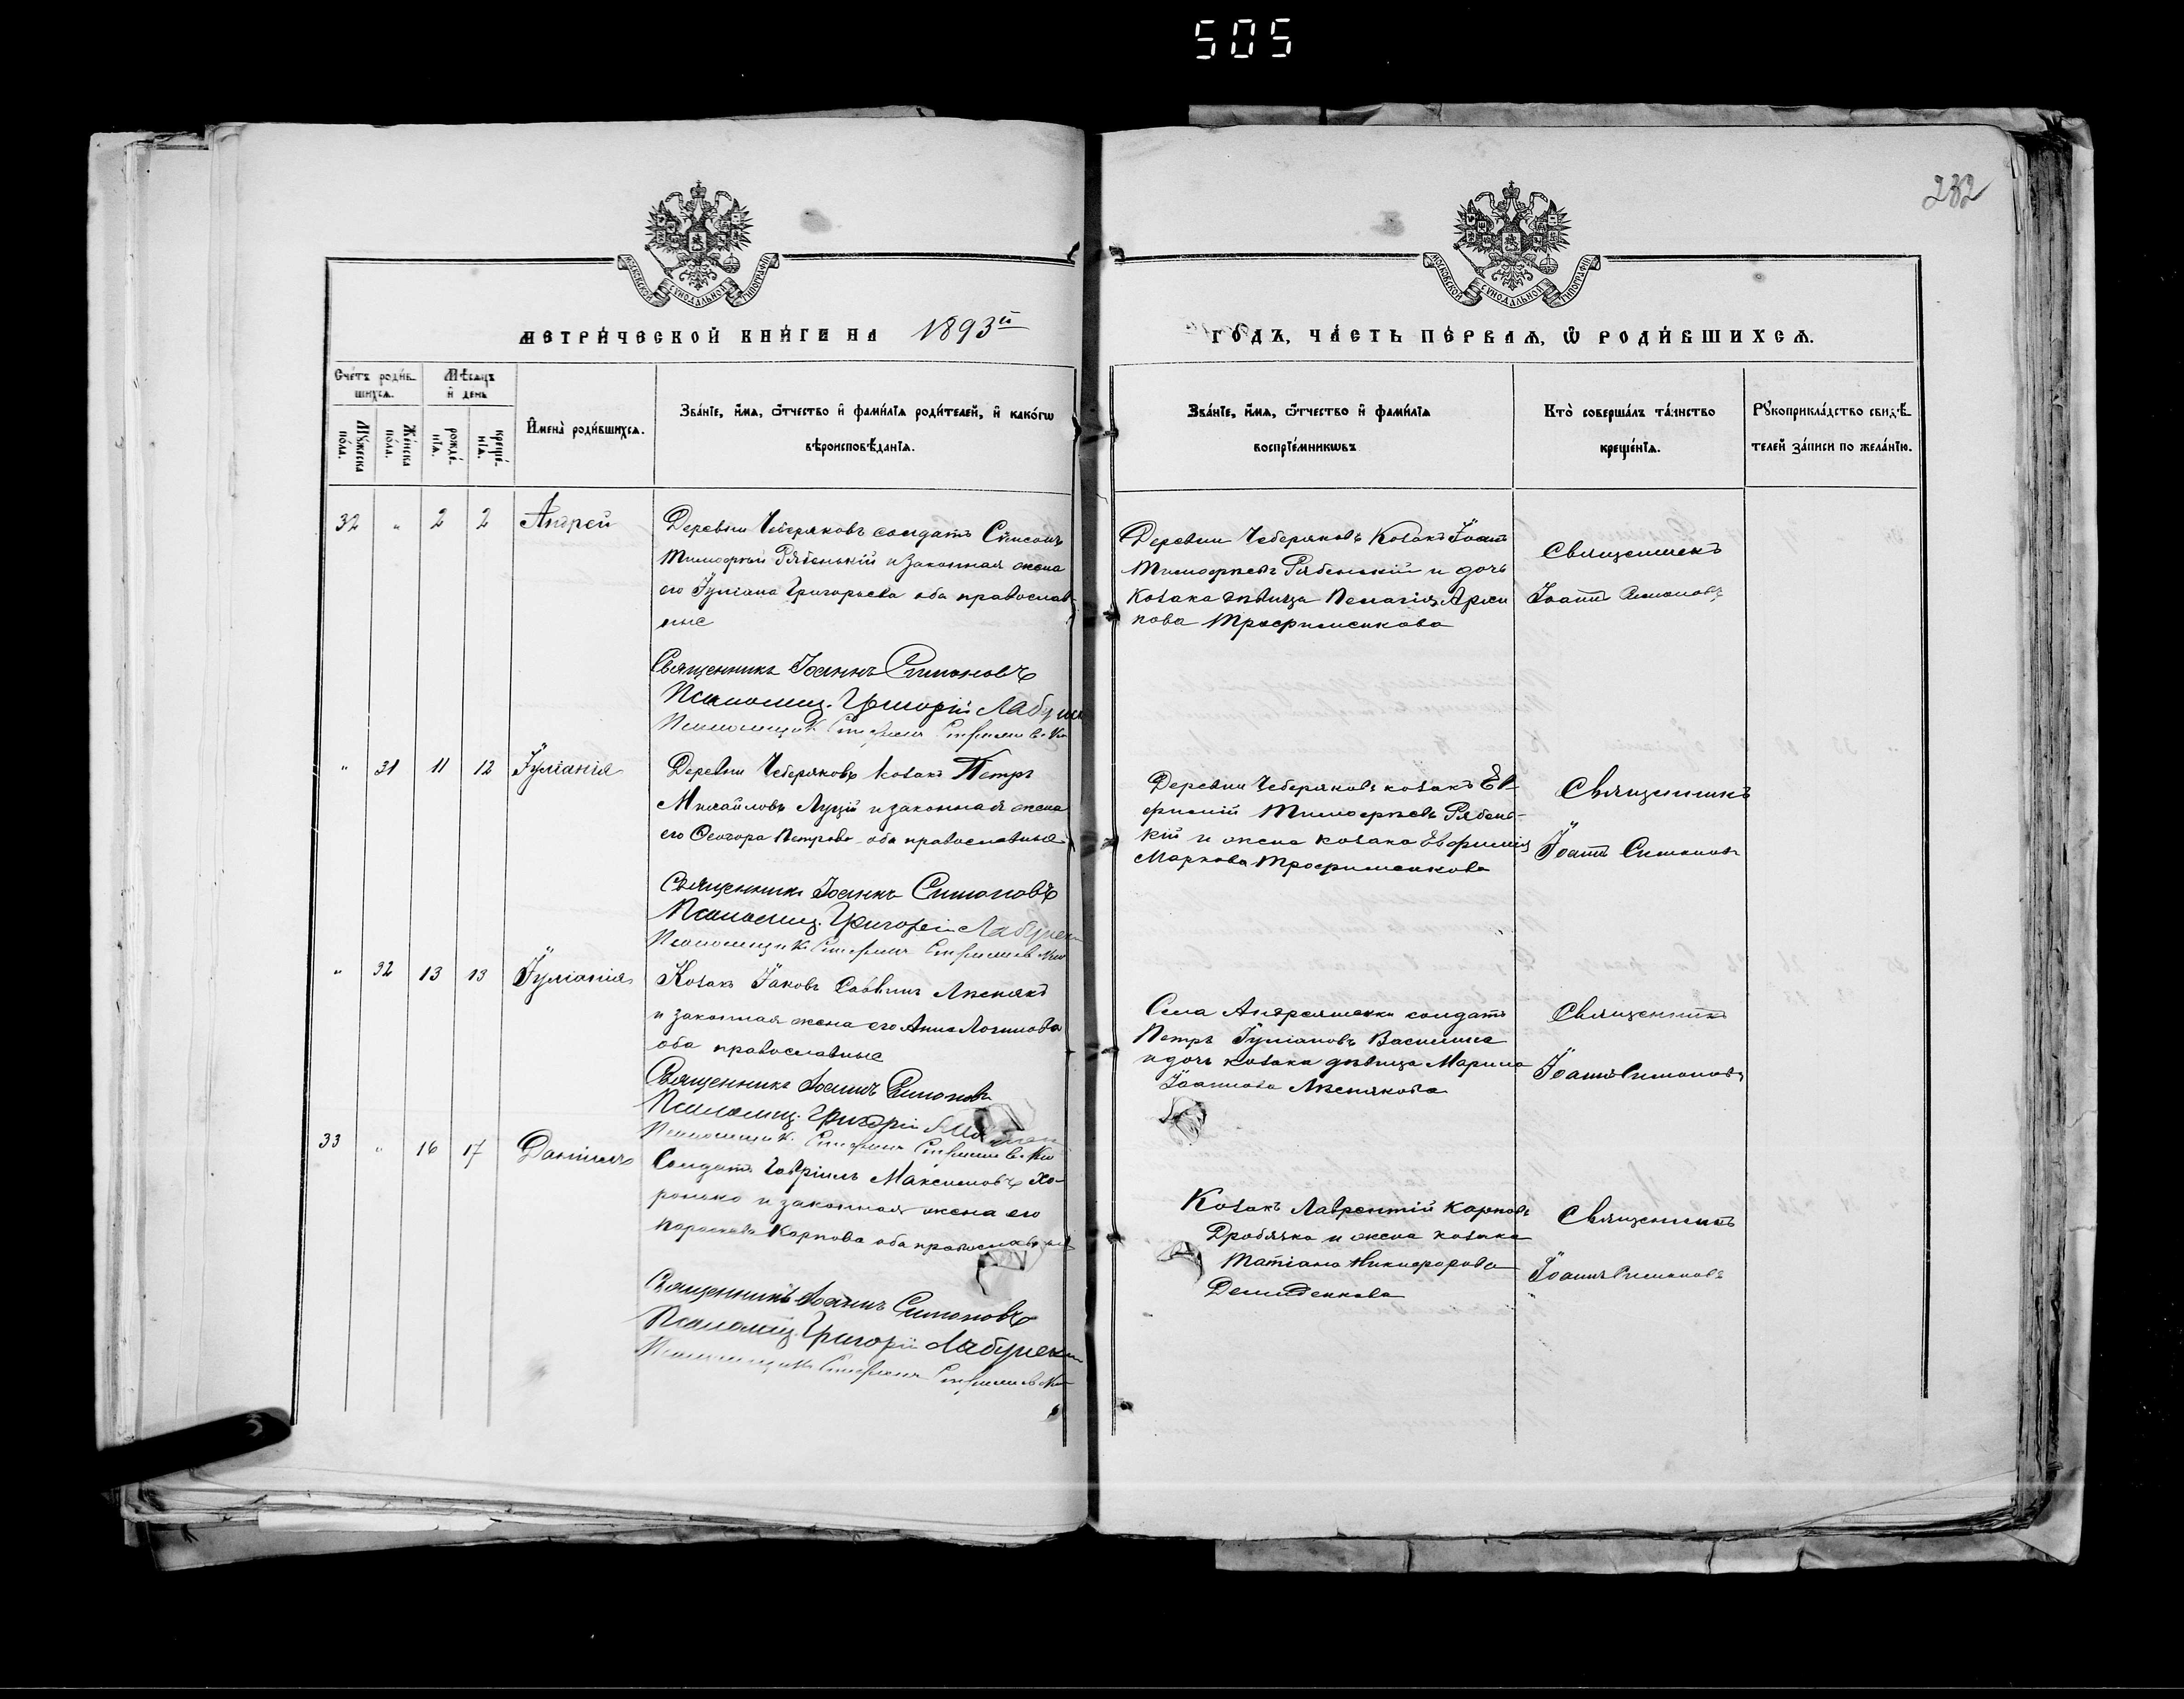 505
232
МОСКОВСКОЙ СѴНОДАЛЬНОЙ ТИПОГРАФІИ
МОСКОВСКОЙ СѴНОДАЛЬНОЙ ТИПОГРАФІИ
МЕТРИ́ЧЕСКОЙ КНИ́ГИ НА 1893й
ГО́ДЪ, ЧА́СТЬ ПЕ́РВАѦ, Ѡ҆ РОДИ́ВШИХСѦ.
Сче́тъ роди́в-
шихсѧ.
Мѣ́сѧцъ
и҆ день
Мꙋ́жеска
по́ла.
Же́нска
по́ла.
рожде́-
нїѧ.
креще́-
нїѧ.
И҆мена̀ роди́вшихсѧ.
Зва́нїе, и҆́мѧ, ѻ҆́тчество и҆ фами́лїѧ роди́телей, и҆ како́гѡ
вѣроисповѣ́данїѧ.
Зва́нїе, и҆́мѧ, ѻ҆́тчество и҆ фами́лїѧ
воспрїе́мникѡвъ
Кто̀ соверша́лъ та́инство
креще́нїѧ.
Рꙋкоприкла́дство свидѣ́-
телей за́писи по жела́нїю.
32 „ 2 2 Андрей
Деревни Чеберяковъ солдатъ Симеонъ
Тимофѣевъ Рябенькій и законная жена
его Іуліана Григорьева оба православ-
ные
Деревни Чеберяковъ козакъ Іоаннъ
Тимофѣевъ Рябенькій и дочь
козака дѣвица Пелагія
Трофименкова
Священникъ
Іоаннъ Симоновъ
Священникъ Іоаннъ Симоновъ
Псаломщ. Григорій
Псаломщикъ Стефанъ
„ 31 11 12 Іуліанія
Деревни Чеберяковъ козакъ Петръ
Михайловъ Луцій и законная жена
его Ѳеодора Петрова оба православные
Деревни Чеберяковъ козакъ Ев
фимій Тимофѣевъ Рябень-
кій и жена козака Евфимія
Маркова Трофименкова
Священникъ
Іоаннъ Симоновъ
Священникъ Іоаннъ Симоновъ
Псаломщ. Григорій
Псаломщикъ Стефанъ
„ 32 13 13 Іуліанія
Козакъ Іаковъ Саввинъ Лисенякъ
и законная жена его Анна Логинова
оба православные
Села Андреяшевки солдатъ
Петръ Іуліановъ
и дочь козака дѣвица Марина
Іоаннова
Священникъ
Іоаннъ Симоновъ
Священникъ Іоаннъ Симоновъ
Псаломщ. Григорій
Псаломщикъ Стефанъ
33 „ 16 17 Даніилъ
Солдатъ Гавріилъ Максимовъ Хо-
ронько и законная жена его
Параскева Карпова оба православные
Козакъ Лаврентій Карповъ
Дробязка и жена козака
Татіана Никифорова
Демиденкова
Священникъ
Іоаннъ Симоновъ
Священникъ Іоаннъ Симоновъ
Псаломщ. Григорій
Псаломщикъ Стефанъ